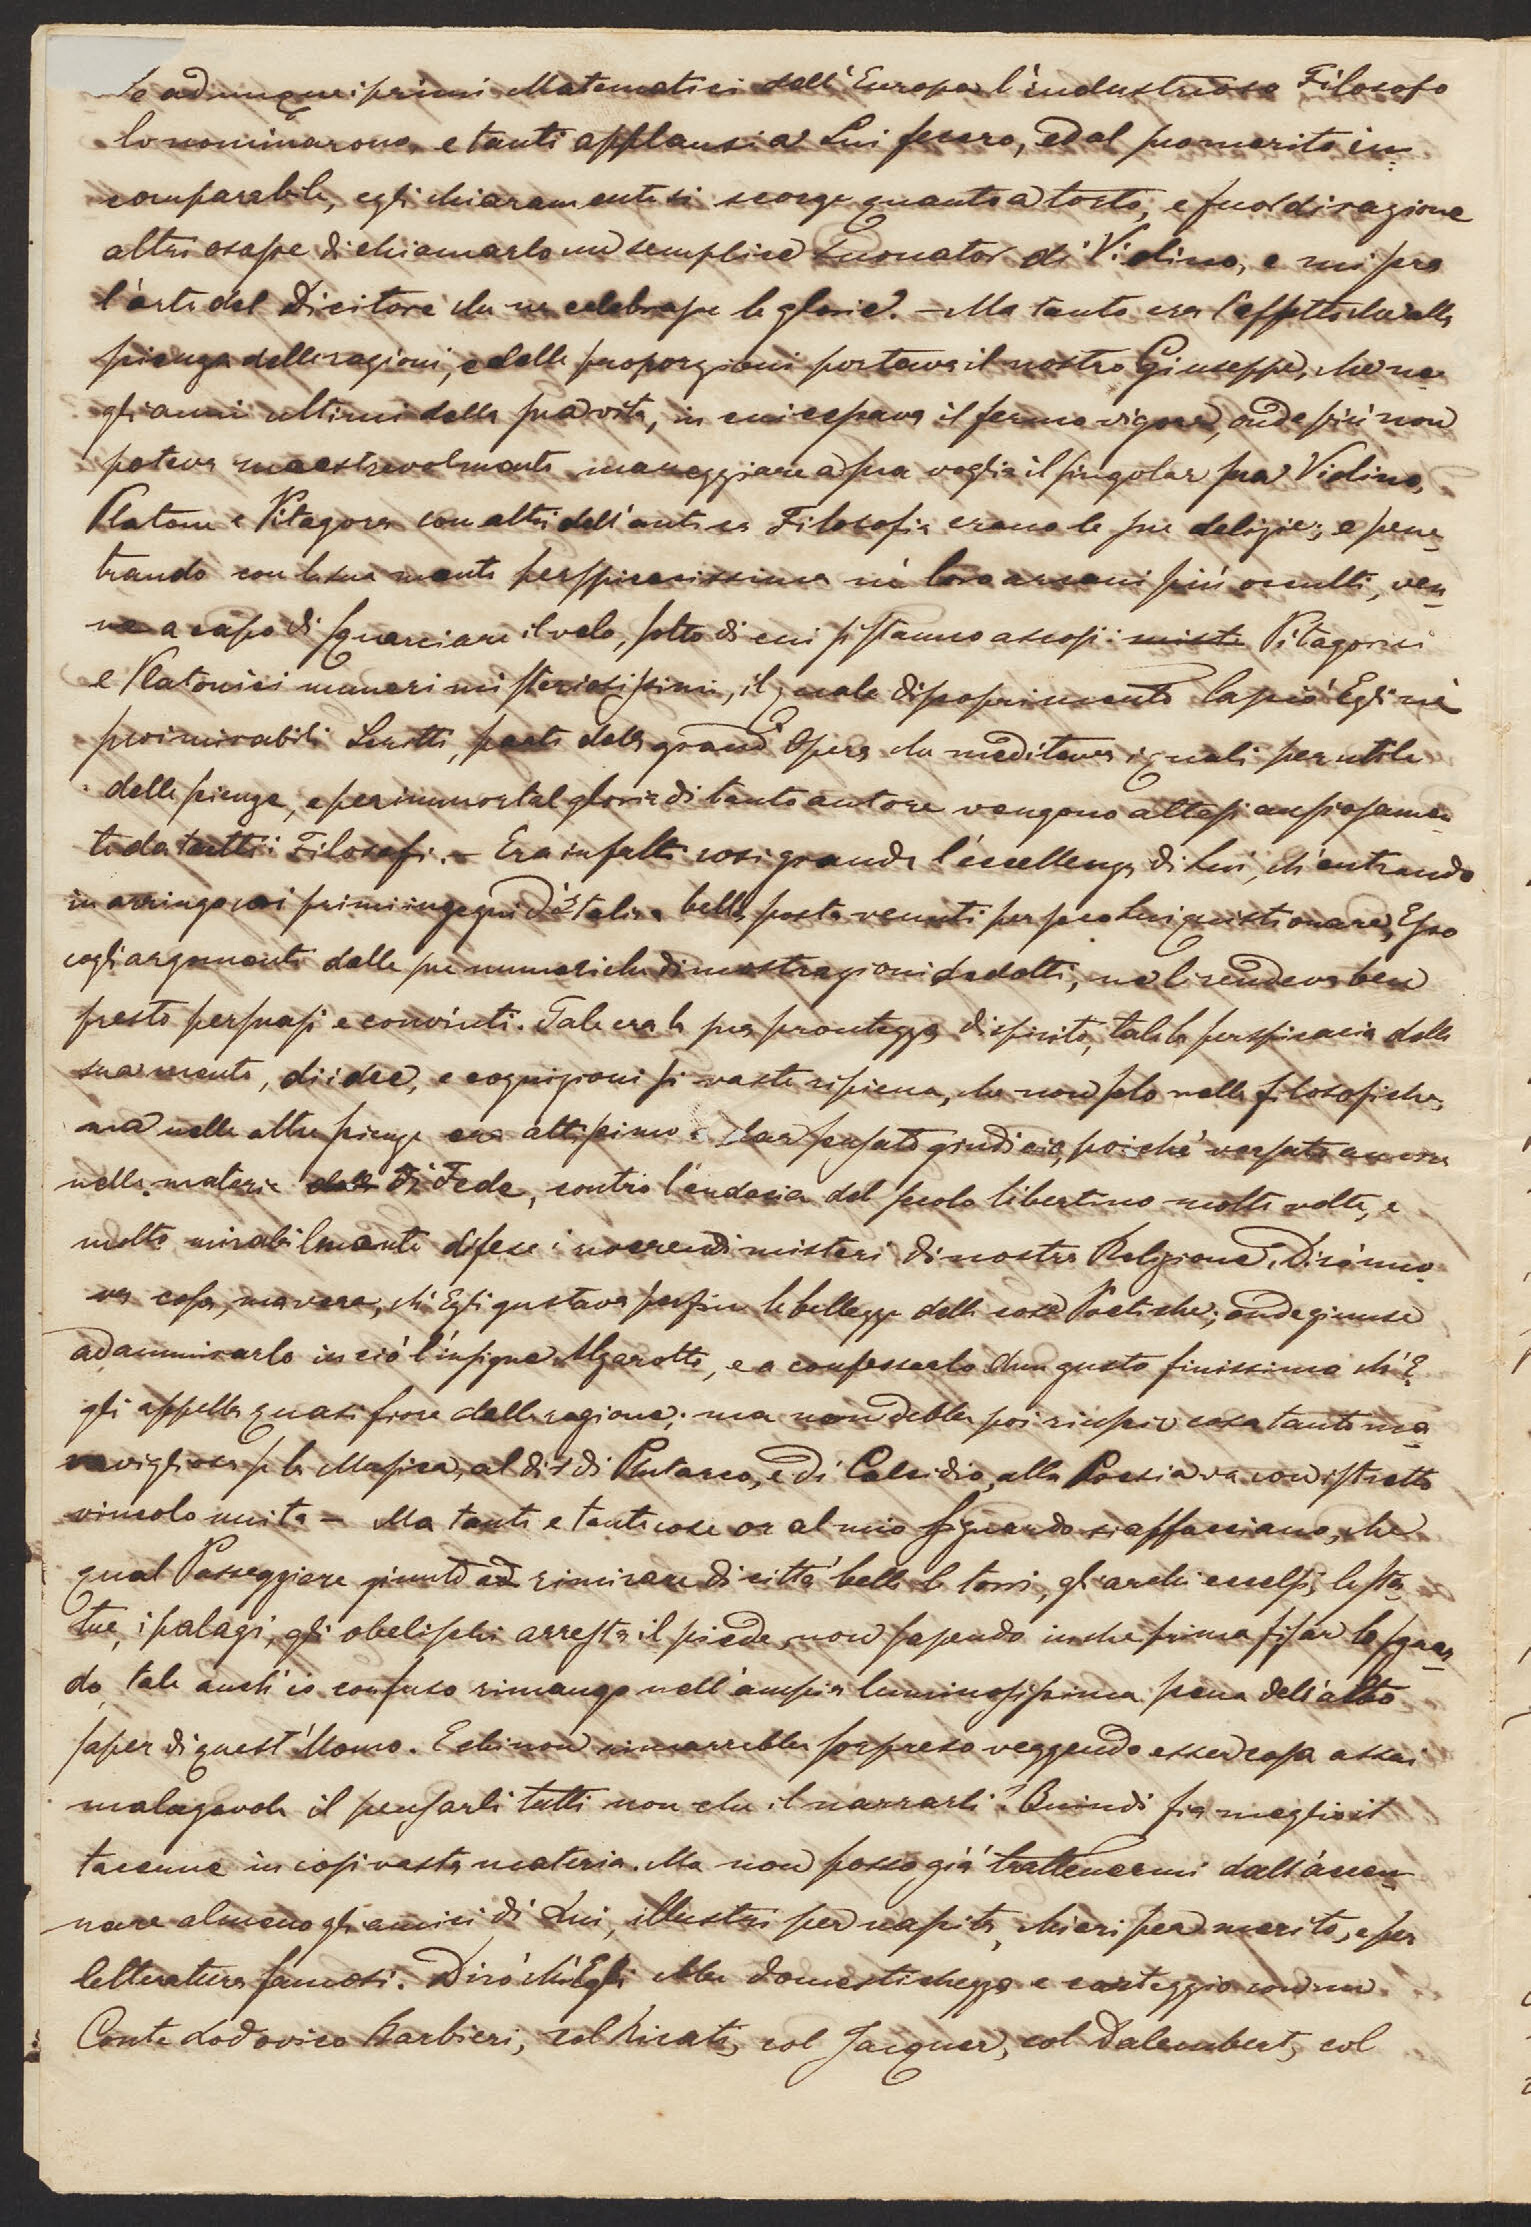 Se adunque i primi Matematici dell'Europa l'industrioso Filosofo
lo nominarono, e tanti applausi a Lui fecero, ed al suo merito in=
comparabile, egli chiaramente si scorge quanto a torto, e fuor di ragione
altri osasse di chiamarlo un semplice Suonator di Violino, e
l'arte del Dicitore che ne celebrasse le glorie. – Ma tanto era l'affetto che alla
scienza delle ragioni, e delle proporzioni portava il nostro Giuseppe, che ne
gli anni ultimi della sua vita, in cui cessava il fermo vigore, onde più non
poteva maestrevolmente maneggiare a sua voglia il singolar suo Violino,
Platone e Pitagora con altri dell'antica Filosofia erano le sue delizie; e pene=
trando con la sua mente perspicacissima ne' loro arcani più occulti, ven=
ne a capo di squarciare il velo, sotto di cui si stanno ascosi i misti Pitagorici
e Platonici numeri misteriosissimi, il quale discoprimento lasciò Egli ne'
suoi mirabili Scritti, parte della grand'Opera che meditava i quali per utile
delle scienze, e per immortal gloria di tanto autore vengono attesi ansiosamen=
te da tutti i Filosofi. – Era infatti così grande l'eccellenza di Lui, ch'entrando
in arringo coi primi ingegni d'Italia a bella posta venuti per seco Lui quistionare, Esso
cogli argomenti dalle sue numeriche dimostrazioni dedotti, ne li rendeva ben
presto persuasi e convinti. Tale era la sua prontezza di spirito, tale la perspicacia della
sua mente, di idee, e cognizioni sì vaste ripiena, che non solo nelle filosofiche,
ma nelle altre scienze era attissimo a dar sensato giudicio, poichè versato ancora
nelle materie di Fede, contro l'audacia del secolo libertino molte volte, e
molto mirabilmente difese i noverendi misteri di nostra Religione. Dirò nuo=
va cosa, ma vera, ch'Egli gustava perfin le bellezze delle cose Poetiche; onde giunse
ad ammirarlo in ciò l'insigne Algarotti, e a confessarlo d'un gusto finissimo ch'E=
gli appella quasi fiore della ragione; ma non debbe poi riuscir cosa tanto ma=
ravigliosa se la Musica, al dir di Plutarco, e di Calcidio, alla Poesia va con istretto
vincolo unita – Ma tante e tante cose or al mio sguardo si affacciano, che
qual Passeggiere giunto ad rimirare di città bella le torri, gli archi eccelsi, le sta=
tue, i palagi, gli obelischi arresta il piede, non sapendo in che prima fisar lo sguar=
do, tale anch'io confuso rimango nell'ampia luminosissima scena dell'alto
saper di quest'Uomo. E chi non rimarrebbe sorpreso veggendo esser cosa assai
malagevole il pensarli tutti non che il narrarli? Quindi fia meglio il
tacerne in così vasta materia. Ma non posso già trattenermi dall'accen=
nare almeno gli amici di Lui, illustri per nascita, chiari per merito, e per
letteratura famosi. Dirò ch'Egli ebbe domestichezza e carteggio con un
Conte Lodovico Barbieri, col Ricati, col Jacquer, col Dalembert, col